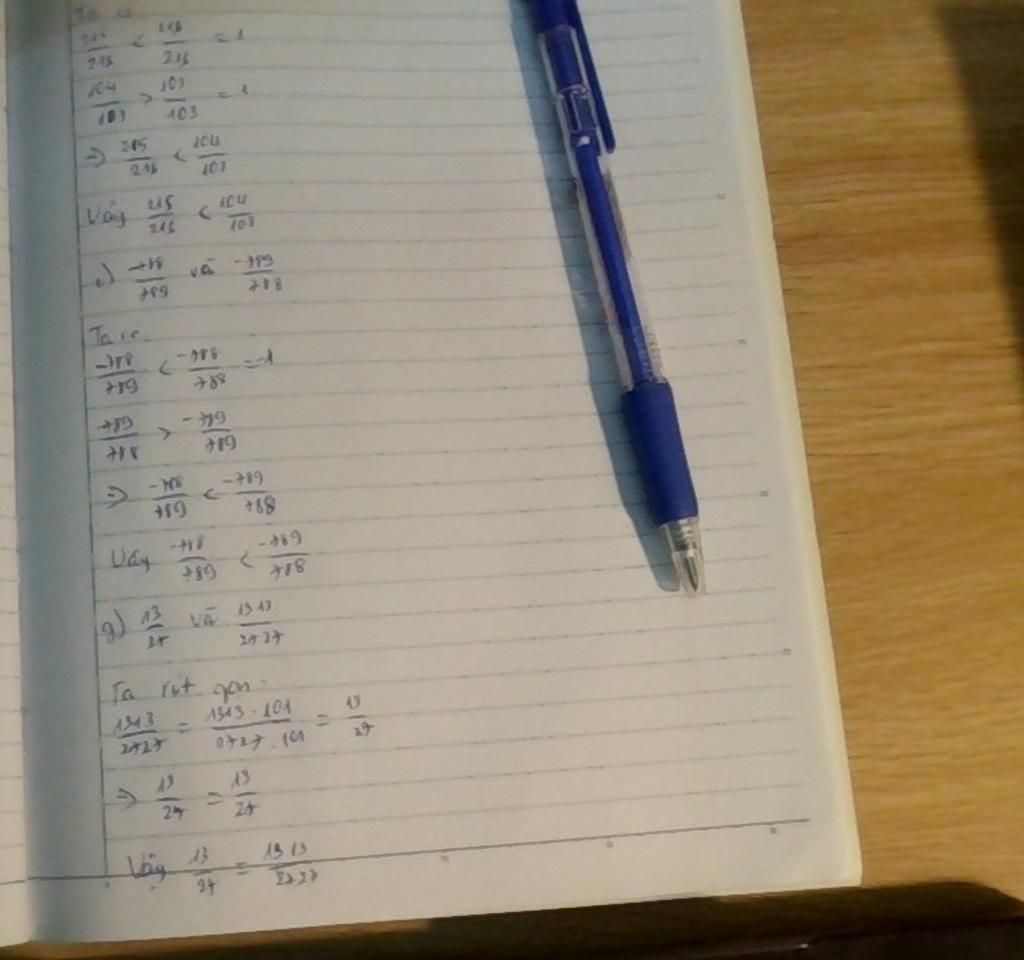 Ta có
215/216 < 216/216 = 1
104/103 > 103/103 = 1
=> 215/216 < 104/103
Vậy 215/216 < 104/103
c) -788/789 và -789/788
Ta có
-788/789 < -788/788 = -1
-789/788 > -789/789
=> -788/789 < -789/788
Vậy -788/789 < -789/788
g) 13/27 và 1313/2727
Ta rút gọn:
1313/2727 = 1313 . 101/2727 . 101 = 13/27
=> 13/27 = 13/27
Vậy 13/27 = 1313/2727